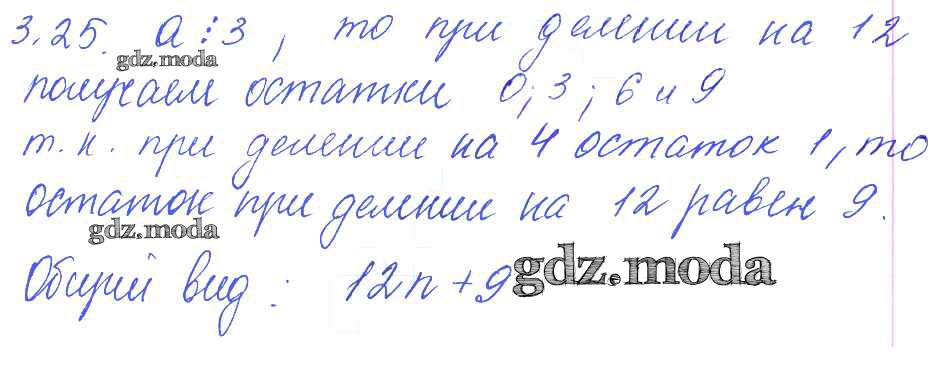 3.25. a⋮3, то при делении на 12
gdz.moda
получаем остатки 0; 3; 6 и 9
т.к. при делении на 4 остаток 1, то
остаток при делении на 12 равен 9.
gdz.moda
Общий вид: 12n+9 gdz.moda